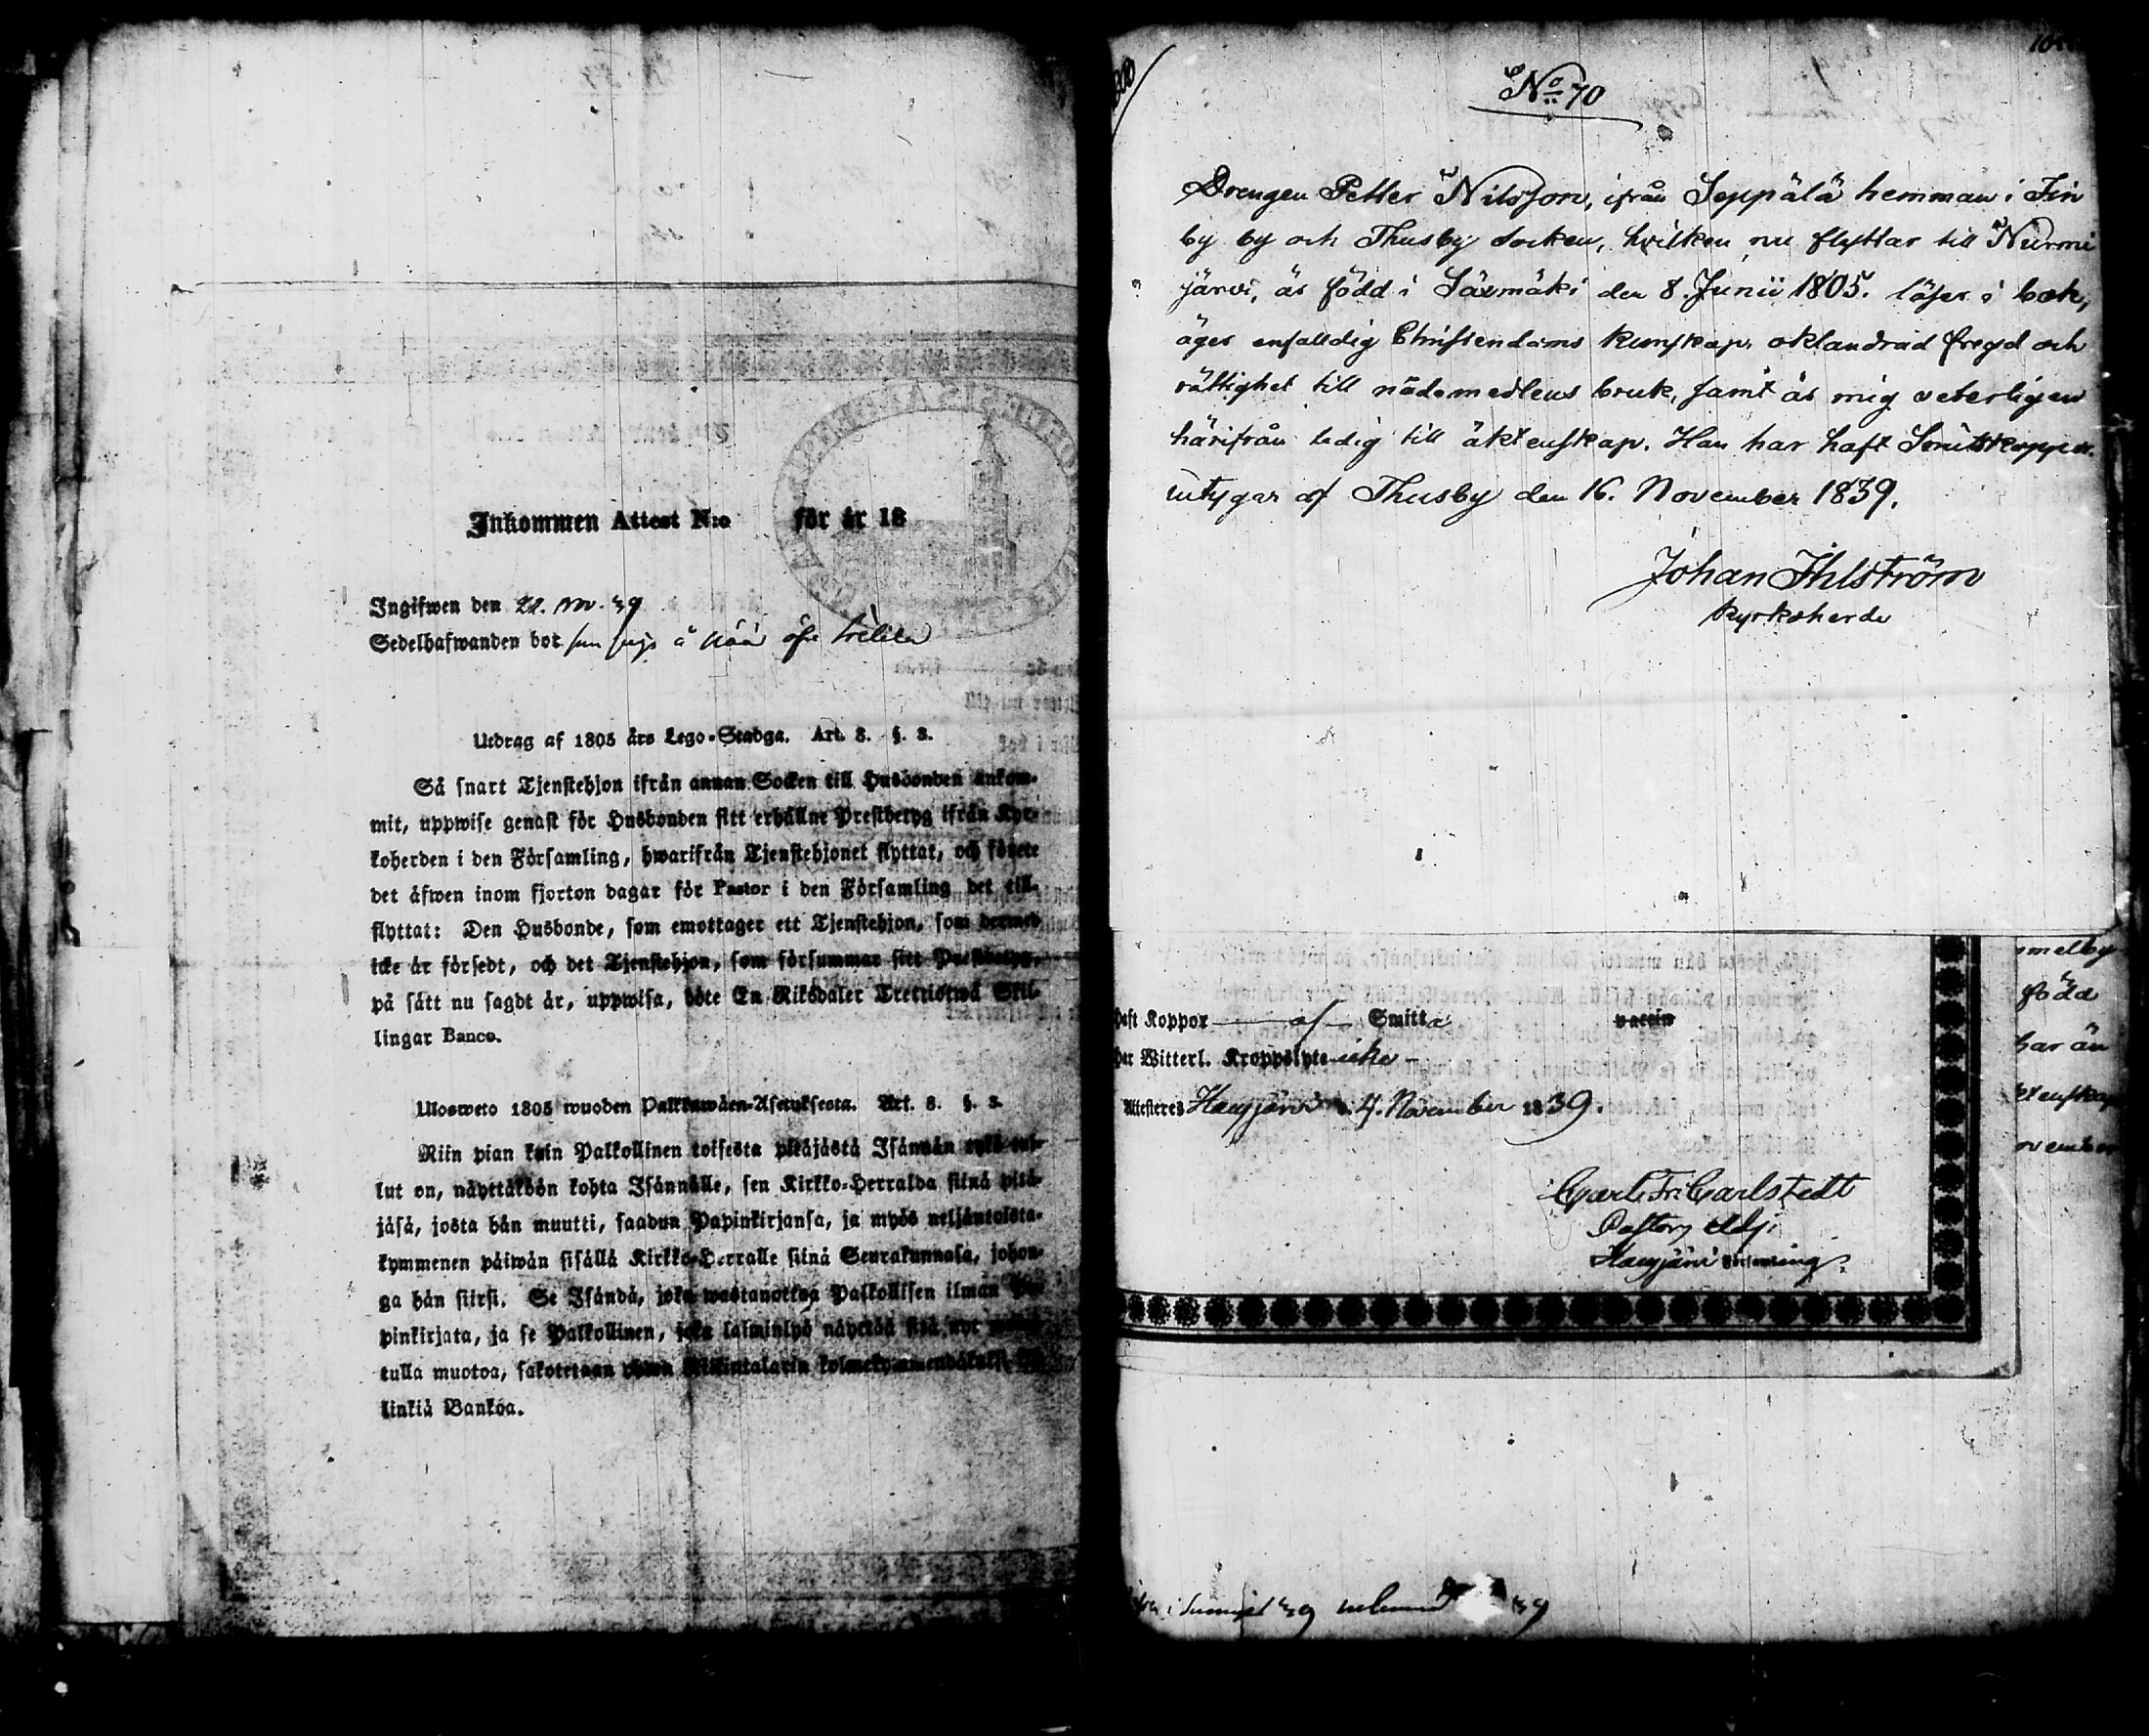 Inkommen Attest N:o för år 18
Ingifwen den 21. nov. 39
Sedelhafwanden bor
Utdrag af 1805 års Lego-Stadga. Art. 8. §. 3.
Så snart Tjenstehjon ifrån annan Socken till Husbonden ankom-
mit, uppwise genast för Husbonden sitt erhållne Prestbetyg ifrån Kyr-
koherden i den Församling, hwarifrån Tjenstehjonet flyttat, och förete
det äfwen inom fjorton dagar för Pastor i den Församling det till-
flyttat: Den Husbonde, som emottager ett Tjenstehjon, som dermed
icke är försedt, och det Tjenstehjon, som försummar sitt Prestbetyg,
på sätt nu sagdt är, uppwisa, böte En Riksdaler Trettiotwå Skil-
lingar Banco.
Ulosweto 1805 wuoden Palkkawäen-Asetuksesta. Art. 8. §. 3.
Niin pian kuin Palkollinen toisesta pitäjästä Isännän tykö tul-
lut on, näyttäköön kohta Isännälle, sen Kirkko-Herralda siinä pitä-
jäsä, josta hän muutti, saadun Papinkirjansa, ja myös neljäntoista-
kymmenen päiwän sisällä Kirkko-Herralle siinä Seurakunnasa, johon-
ga hän siirsi. Se Isändä, joka wastanottaa Palkollisen ilman Pa-
pinkirjata, ja se Palkollinen, joka laiminlyö näyttää sitä nyt
tulla muotoa, sakotetaan yhden Riksintalarin kolmekymmendäkaksi
linkiä Bankoa.
No 70
Drengen Petter Nilsson, ifrån Seppälä hemman i Fin
by by och Thusby Socken, hvilken nu flyttar till Nurmi
järvi, är född i Säxmäki den 8. Junii 1805. läser i bok,
äger enfalldig Christendoms kunskap, oklandrad fregd och
rättighet till nådemedlens bruk, samt är mig veterligen
härifrån ledig till äktenskap. Han har haft Smittkoppor.
intygar af Thusby den 16. November 1839.
Johan Ihlström
kyrkoherde
mmelby
född
har än
ktenskap
ovember
Haft Koppor af Smitta vaccin
Har Witterl. Kroppslyte icke
Attesteres Hausjärvi d. 4. November 1839.
Carl Fr. Carlstedt
Pastors Adj.
Hausjärvi Församling.